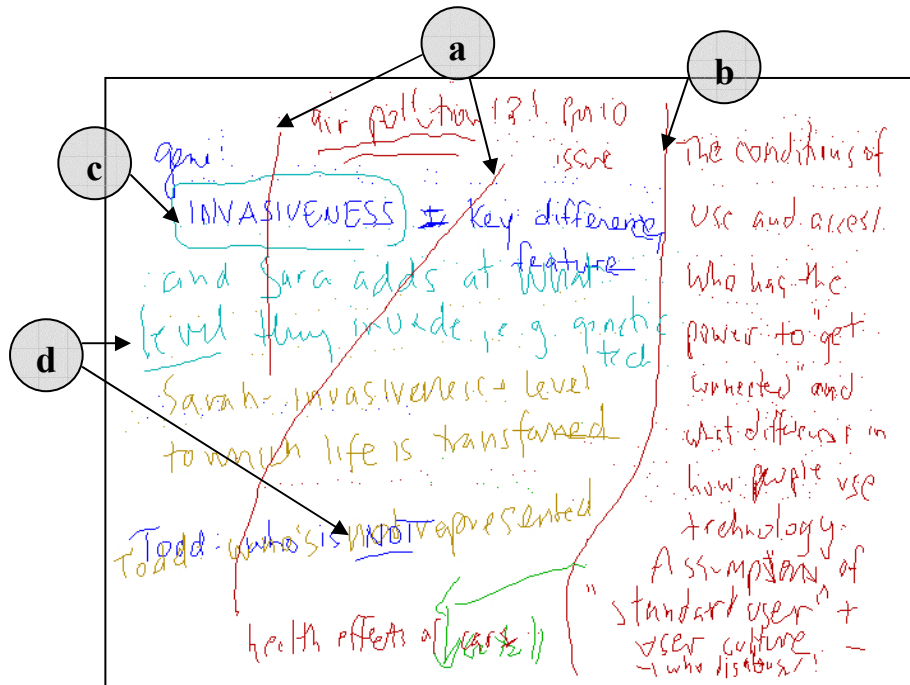 a
b
c
d
air pollution !?! PM10
issue
geni:
INVASIVENESS I key difference
feature
and Sara adds at what
level they invade, e.g. genetic
tech
Sarah - invasiveness + level
to which life is transformed
Todd: who is NOT
Todd: who's not represented
health effects of cars
The conditions of
use and access.
Who has the
power to "get
connected" and
what differences in
how people use
technology.
Assumptions of
"standard user" +
user culture -